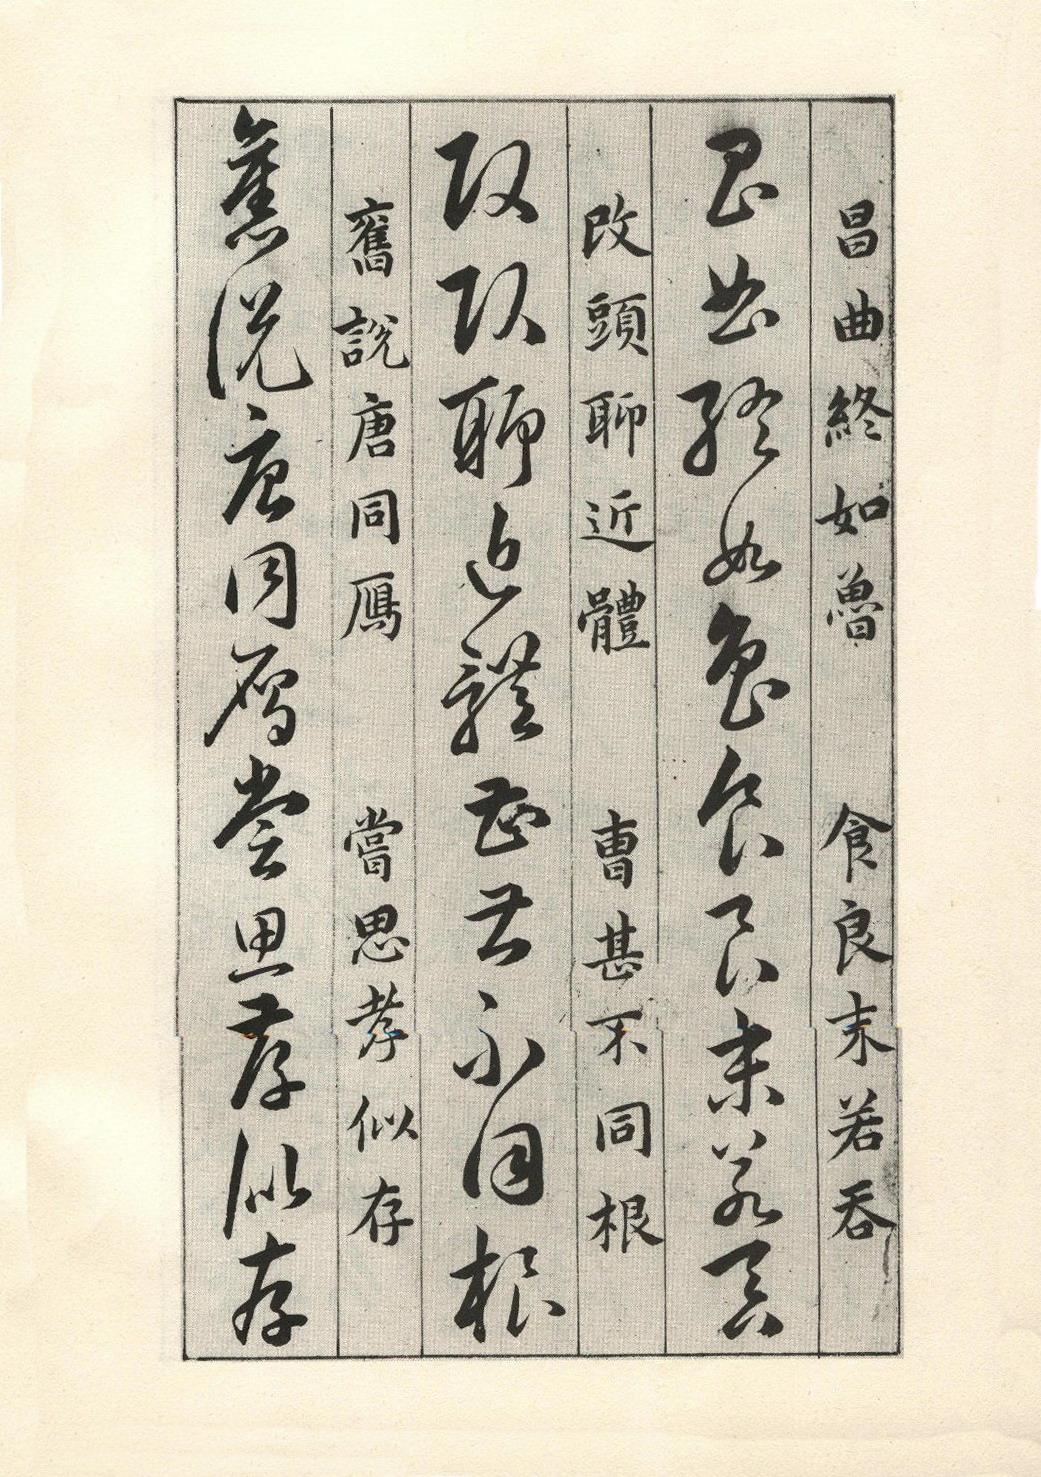 昌曲終如魯 食良末若吞
昌曲終如魯食良末若吞
改頭聊近體 曹甚不同根
改頭聊近體曹甚不同根
舊說唐同鴈 嘗思孝似存
舊說唐同鴈嘗思孝似存